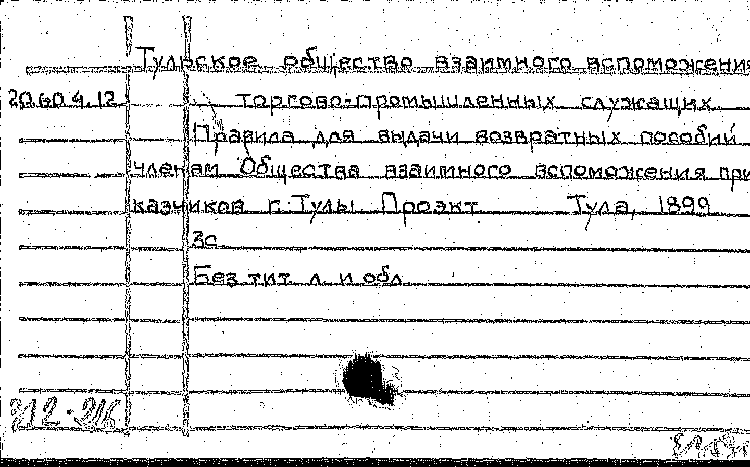 Тульское общество взаимного вспоможения
20.60.4.12 торгово-промышленных служащих
Правила для выдачи возвратных пособий
членам Общества взаимного вспоможения при
казчиков г. Тулы Проэкт Тула, 1899
3с
Без тит л и обл
212-216